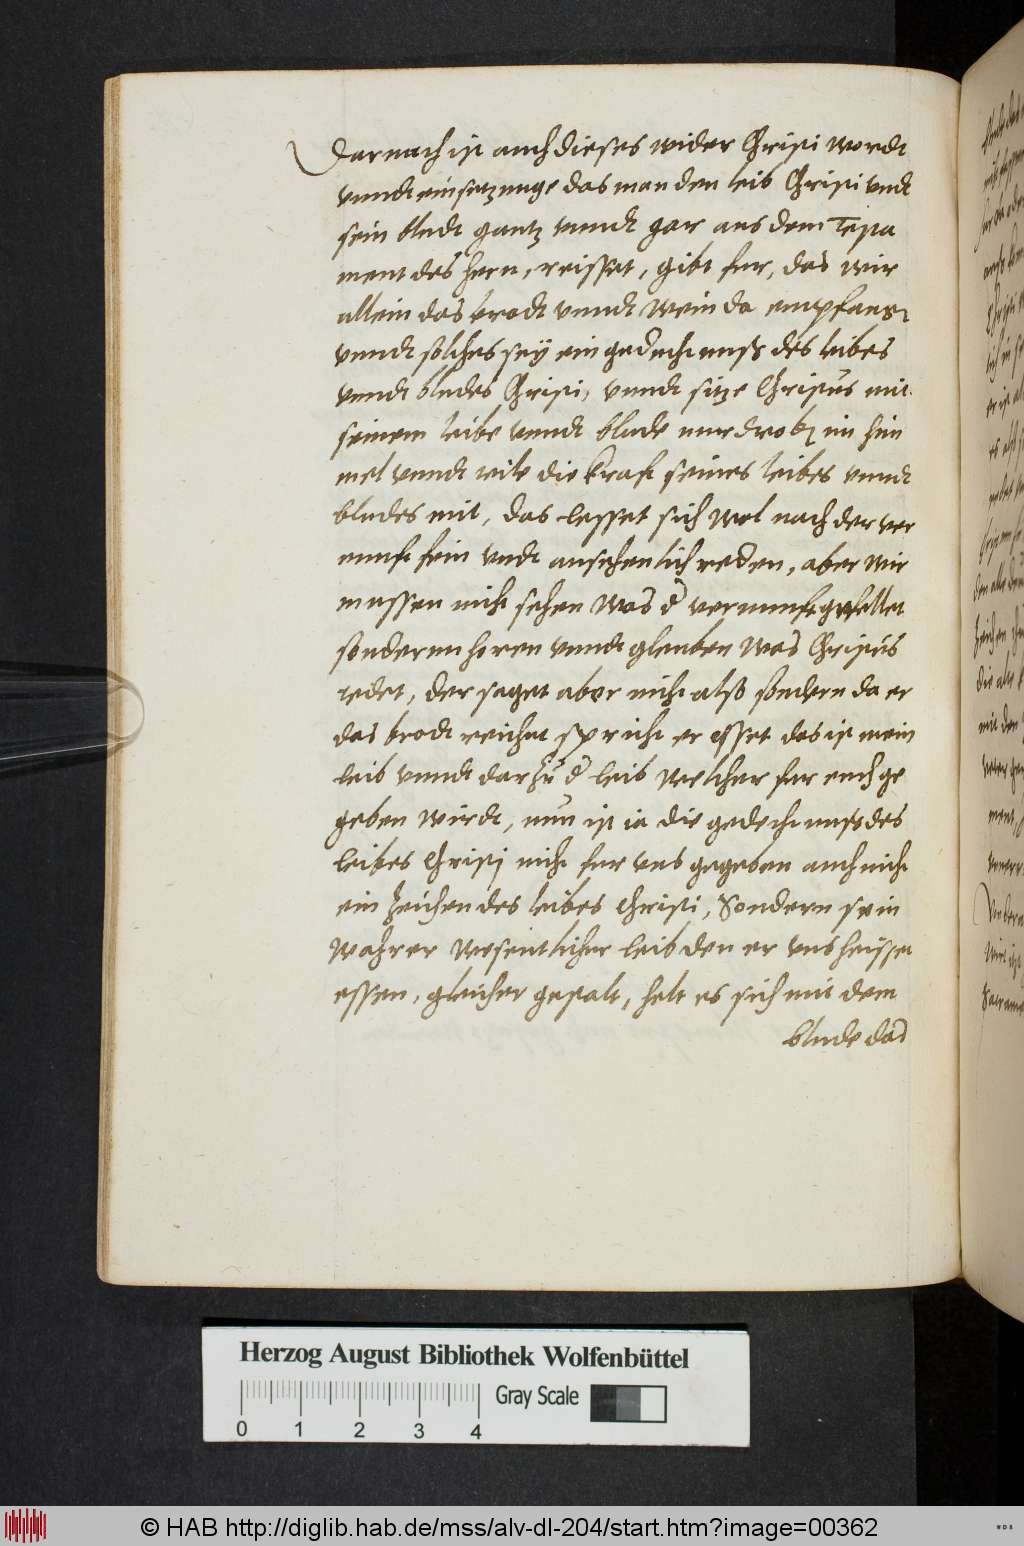 Darnach ist auch dieses wider Christi wordt
vnndt einsetzunge das man den leib Christi vndt
sein bludt gantz vnndt gar aus dem Testa
ment des hern, reisset, gibt fur, das wir
allein das brodt vnndt wein da empfang
vnndt solches seÿ ein gedechtnuß des leibes
vnndt bludes Christi, vnndt sitze Christus mit
seinem leibe vnndt blude nur drob im him
mel vnndt teile die krafft seines leibes vnndt
bludes mit, das lesset sich wol nach der ver
nunfft fein vndt ansehenlich reden, aber wir
mussen nicht sehen was d vernunfft gefellet
sondernn horen vnndt gleuben was Christus
redet, der saget aber nicht also sondern da er
das brodt reichet spricht er esset das ist mein
leib vnndt darzu d leib welcher fur euch ge
geben wirdt, nun ist ia die gedechtnuß des
leibes Christj nicht fur vns gegeben auch nicht
ein zeichen des leibes Christi, Sondern sein
wahrer wesentlicher leib den er vns heisset
essen, gleicher gestalt, helt es sich mit dem
blude das
Herzog August Bibliothek Wolfenbüttel
Gray Scale
0 1 2 3 4
© HAB http://diglib.hab.de/mss/alv-dl-204/start.htm?image=00362